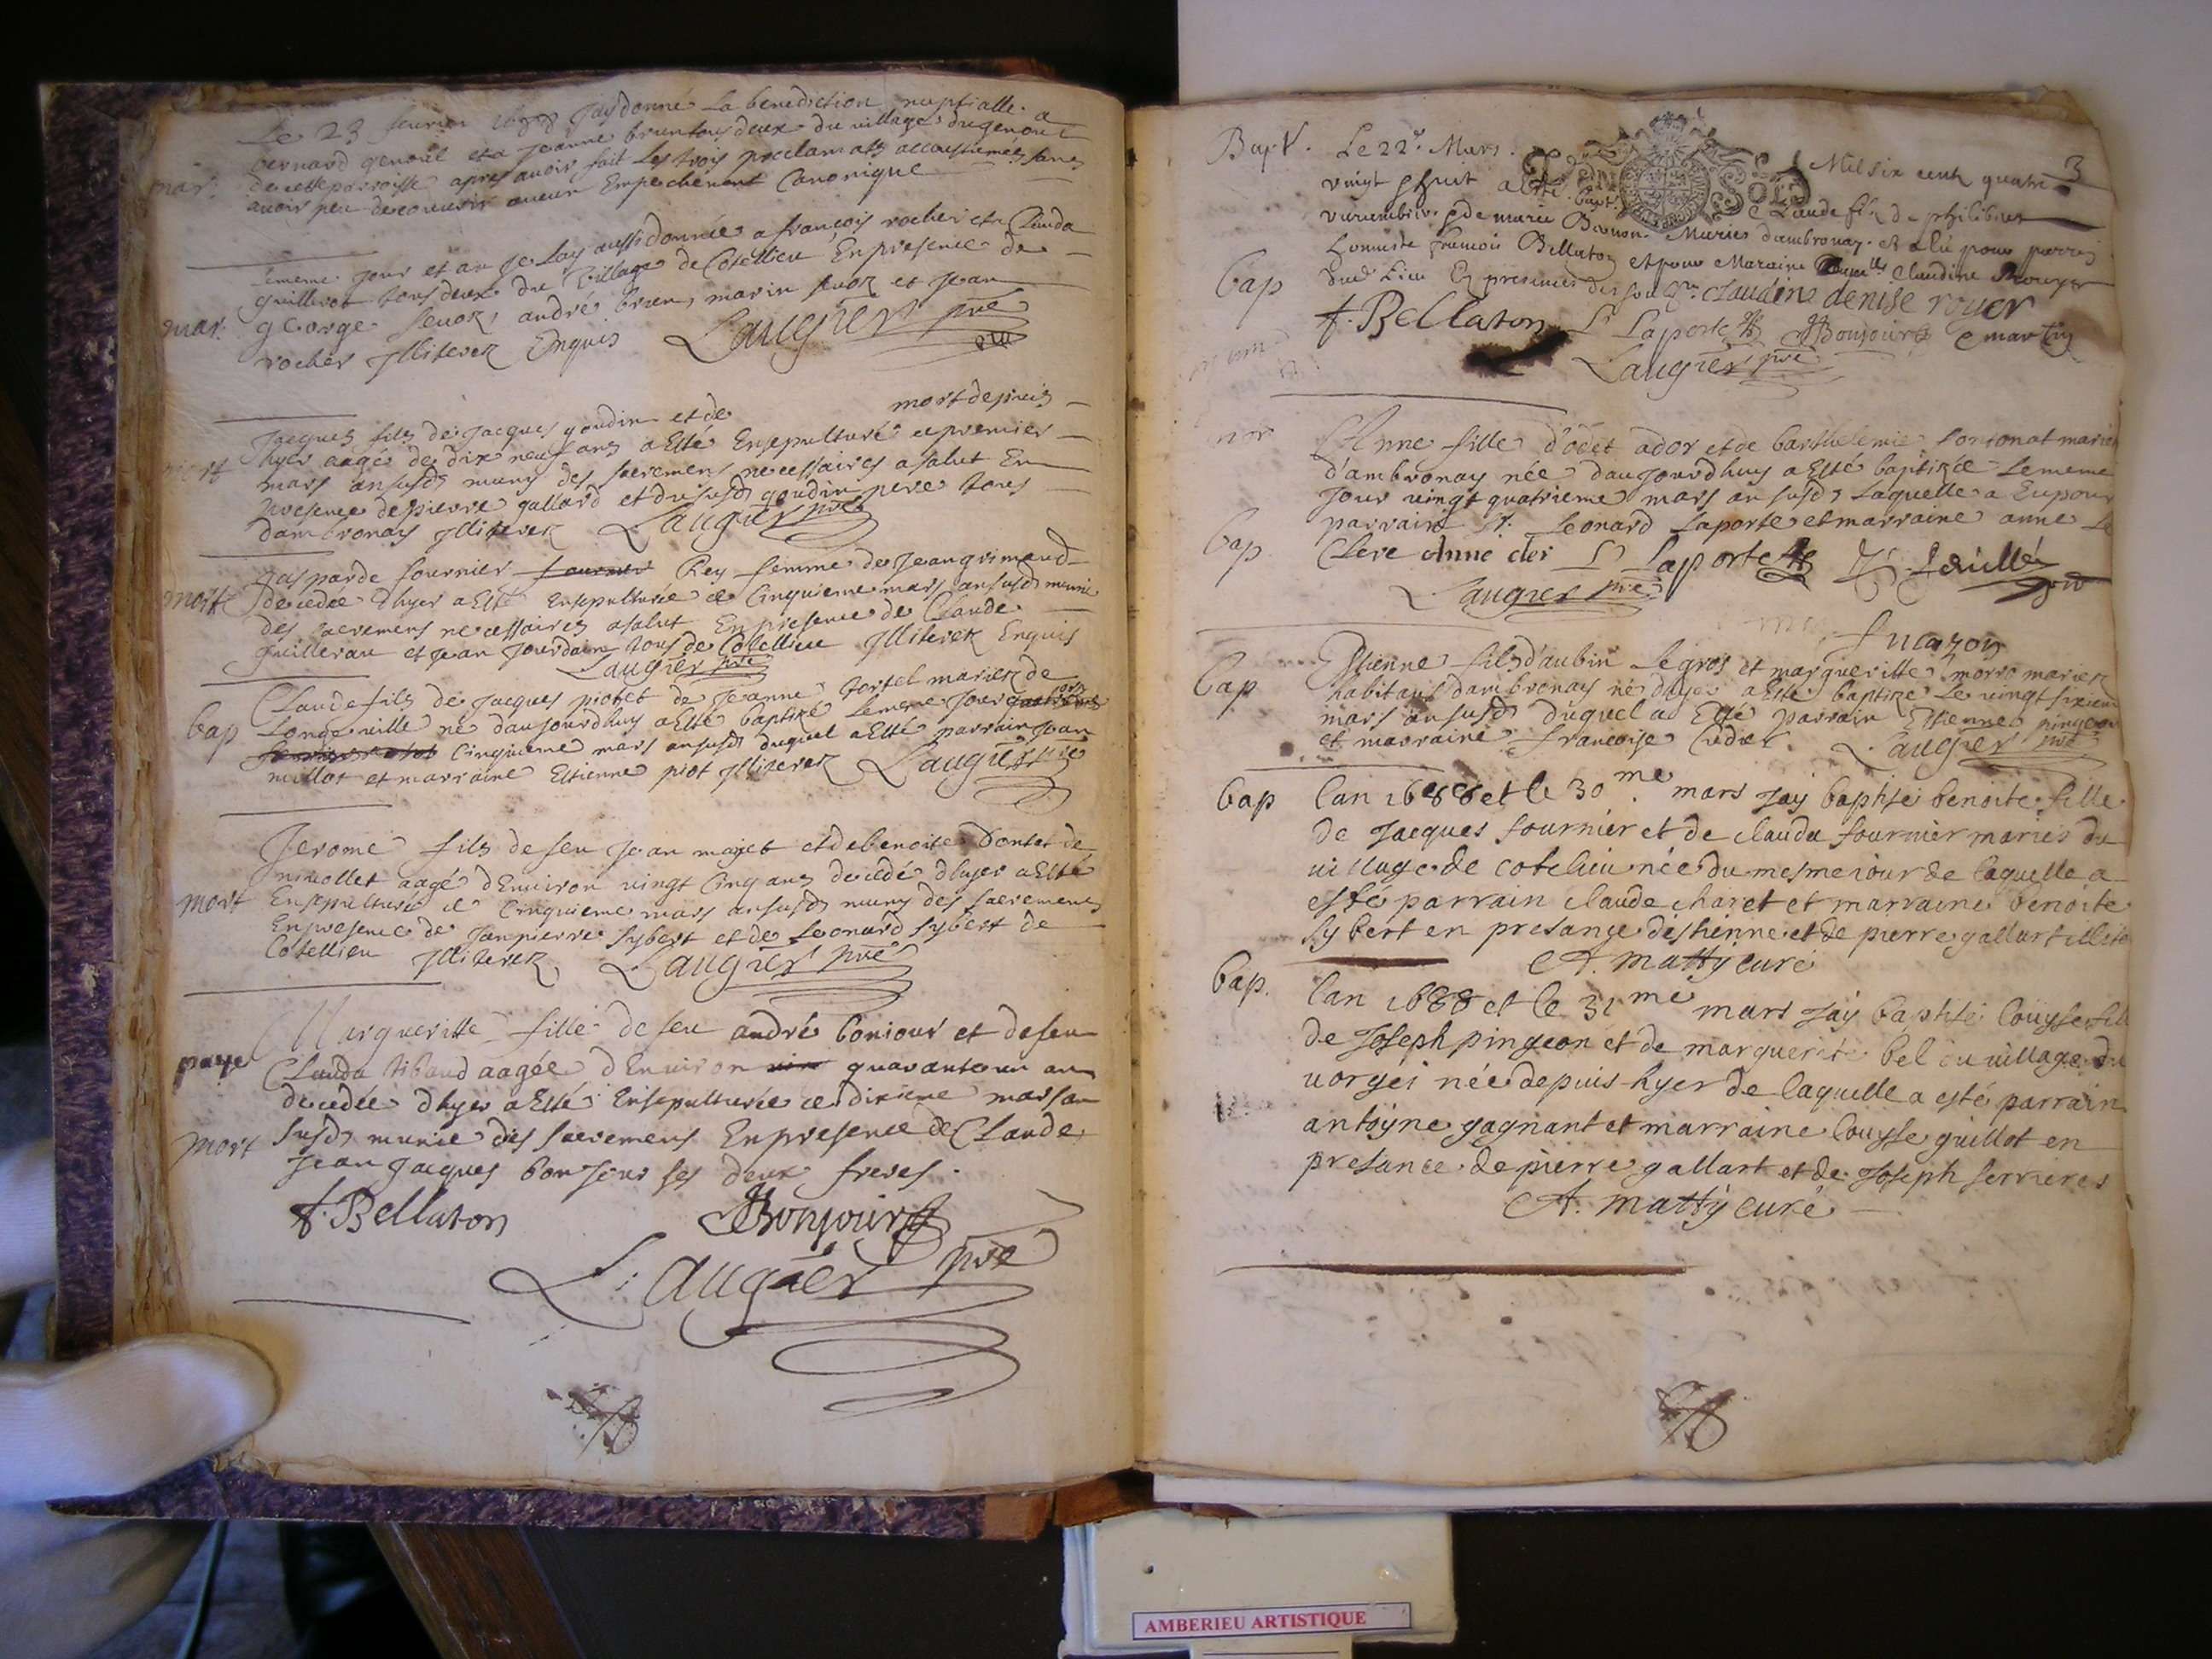 Le 23 feurier 1688 Jay donné La benediction nuptialle a
bernard genoul et a Jeanne brun tous deux du uillage du genoul
mar. de cette parroisse apres auoir fait Les trois proclamats accoustumez sans
auoir peu decouurir aucun Empechement Canonique
Lememe jour et an Je Lay aussi donnée a françois rocher et a Clauda
guillerot tous deux du Village de Cotellieu En presence de
mar. george seuoz, andré brun, marin seuoz et Jean
rocher Illiterez Enquis Laugier pre
Jacques fils de Jacques goudin et de mort depuis
mort hyer aagé de dix neuf ans a Esté Ensepulturé ce premier
mars an susd. muny des sacremens necessaires a salut En
presence de pierre gallard et du susd. goudin pere tous
dambronay Illiterez Laugier pre
gasparde fournier Rey femme de Jean grimaud
mort decedée dhyer a Esté Ensepulturée ce Cinquieme mars an susd. munie
des sacremens necessaires a salut En presence de Claude
guillerau et Jean Jourdain tous de Cotellieu Illiterez Enquis
Laugier pre
Claude fils de Jacques piot et de Jeanne tortel mariez de
bap Longeuille né daujourdhuy a Esté baptizé Lememe Jour
Cinquieme mars an susd. duquel a Esté parrain Jean
millot et marraine Estienne piot Illiterez Laugier pre
Jerome fils de feu Jean majet et de benoite Dontet de
niuollet aagé dEnuiron uingt Cinq ans decedé dhyer a Esté
mort Ensepulturé ce Cinquieme mars an susd. muny des sacremens
En presence de Jean pierre sybert et de Leonard sybert de
Cotellieu Illiterez Laugier pre
Margueritte fille de feu andré boniour et de feu
paye Clauda tibaud aagée dEnuiron quarante un an
decedée dhyer a Esté Ensepulturée ce dixieme mars an
mort susd. munie des sacremens En presence de Claude
Jean Jacques bon Jour ses deux freres.
f. Bellaton Bonjour
L. Augier pre
3
Bapt. Le 22e Mars Mil six cent quatre
vingt huit a esté bapt Claude fils de philibert
vurumbier et de marie Bronon Mariés dambronay et a Eu pour parrin
bap honneste francois Bellaton et pour Maraine Claudine Rouyer
dud. Lieu En presence des sousg. claudine denise royer
f. Bellaton L Laporte Bonjour C martin
Laugier pre
Anne fille d'odet ador et de barthelemie sorionat mariez
d'ambronay née daujourdhuy a Esté baptizée Lememe
Jour uingt quatrieme mars an susd. Laquelle a Eu pour
parrain Sr. Leonard Laporte et marraine anne Le
bap Clerc Anne cler L Laporte
Laugier pre
Estienne fils d'aubin Legros et margueritte morro mariez
bap habitans dambronay né dhyer a Esté baptizé Le uingt sixieme
mars an susd. duquel a Esté parrain Estienne pingeon
et marraine francoise Cudel Laugier pre
bap lan 1688 et le 30me mars Jay baptisé benoite fille
de Jacques fournier et de clauda fournier mariés du
uillage de cotelieu née du mesme iour de laquelle a
esté parrain claude charet et marraine benoite
sybert en presance destienne et de pierre gallart illite
A. Matty curé
bap. lan 1688 et le 31me mars Jay baptisé louyse fille
de Joseph pingeon et de marguerite bel du uillage du
uorgei née depuis hyer de laquelle a esté parrain
antoyne gagnant et marraine louyse guillot en
presance de pierre gallart et de Joseph ferrieres
A. Matty curé
AMBERIEU ARTISTIQUE